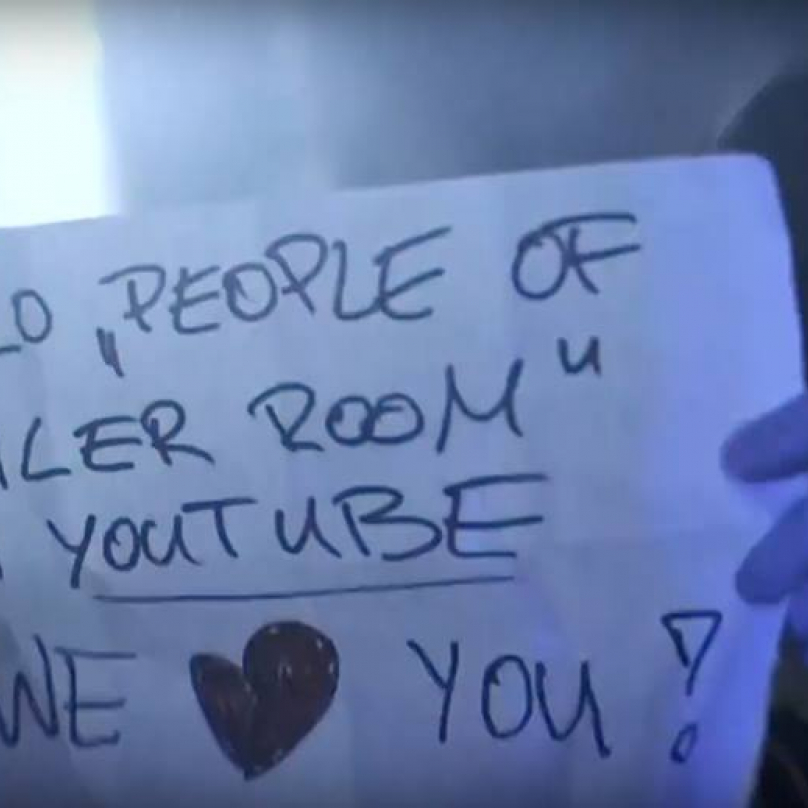 LO „PEOPLE OF
ILER ROOM"
YOUTUBE
WE ❤ YOU!